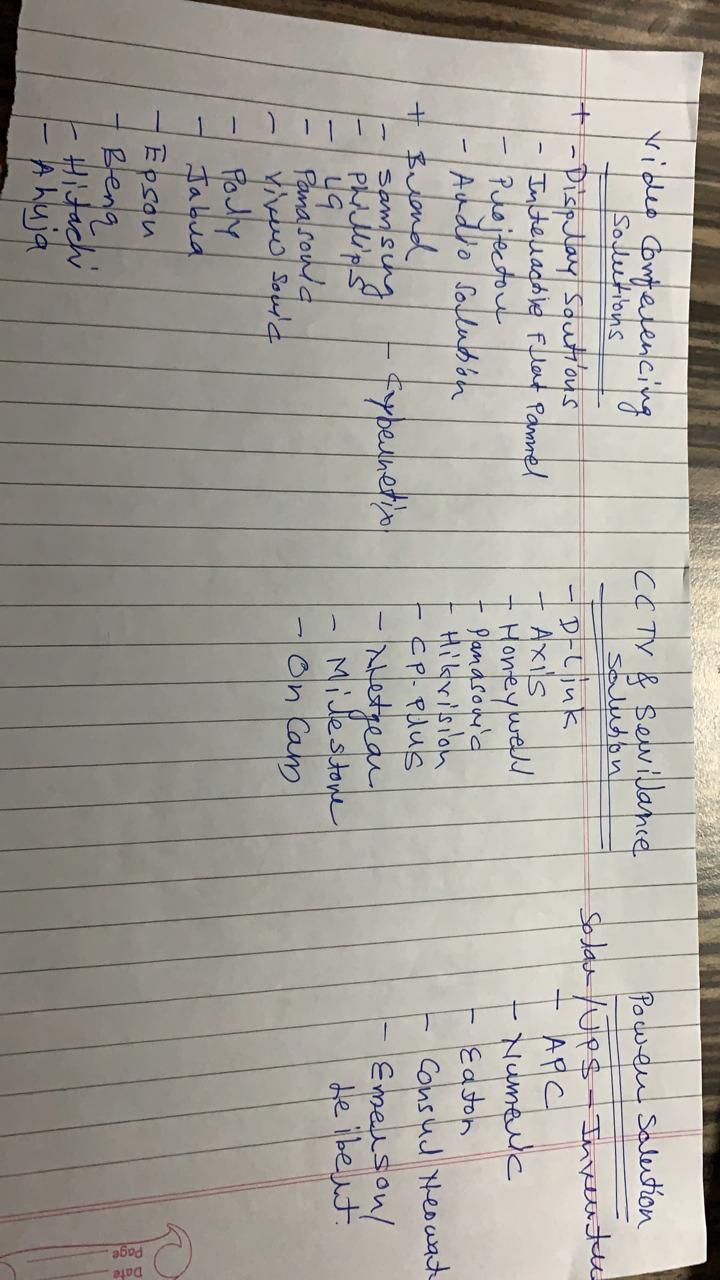 Video Conferencing
Solutions
+ - Display Soutions
- Interactive Flat Pannel
- Projector
- Audio Solution
+ Brand
- Samsung - Cybernetix
- Phillips
- LG
- Panasonic
- View Sonic
- Poly
- Jabra
- Epson
- Benq
- Hitachi
- Ahuja
CCTV & Servilance
Solution
- D-Link
- Axis
- Honeywell
- Panasonic
- Hikvision
- CP-Plus
- Netgear
- Milestone
- On Cam
Power Solution
Solar/UPS - Inverter
- APC
- Numeric
- Eaton
- Consul Neowat
- Emerson/
Leibert.
Date
Page